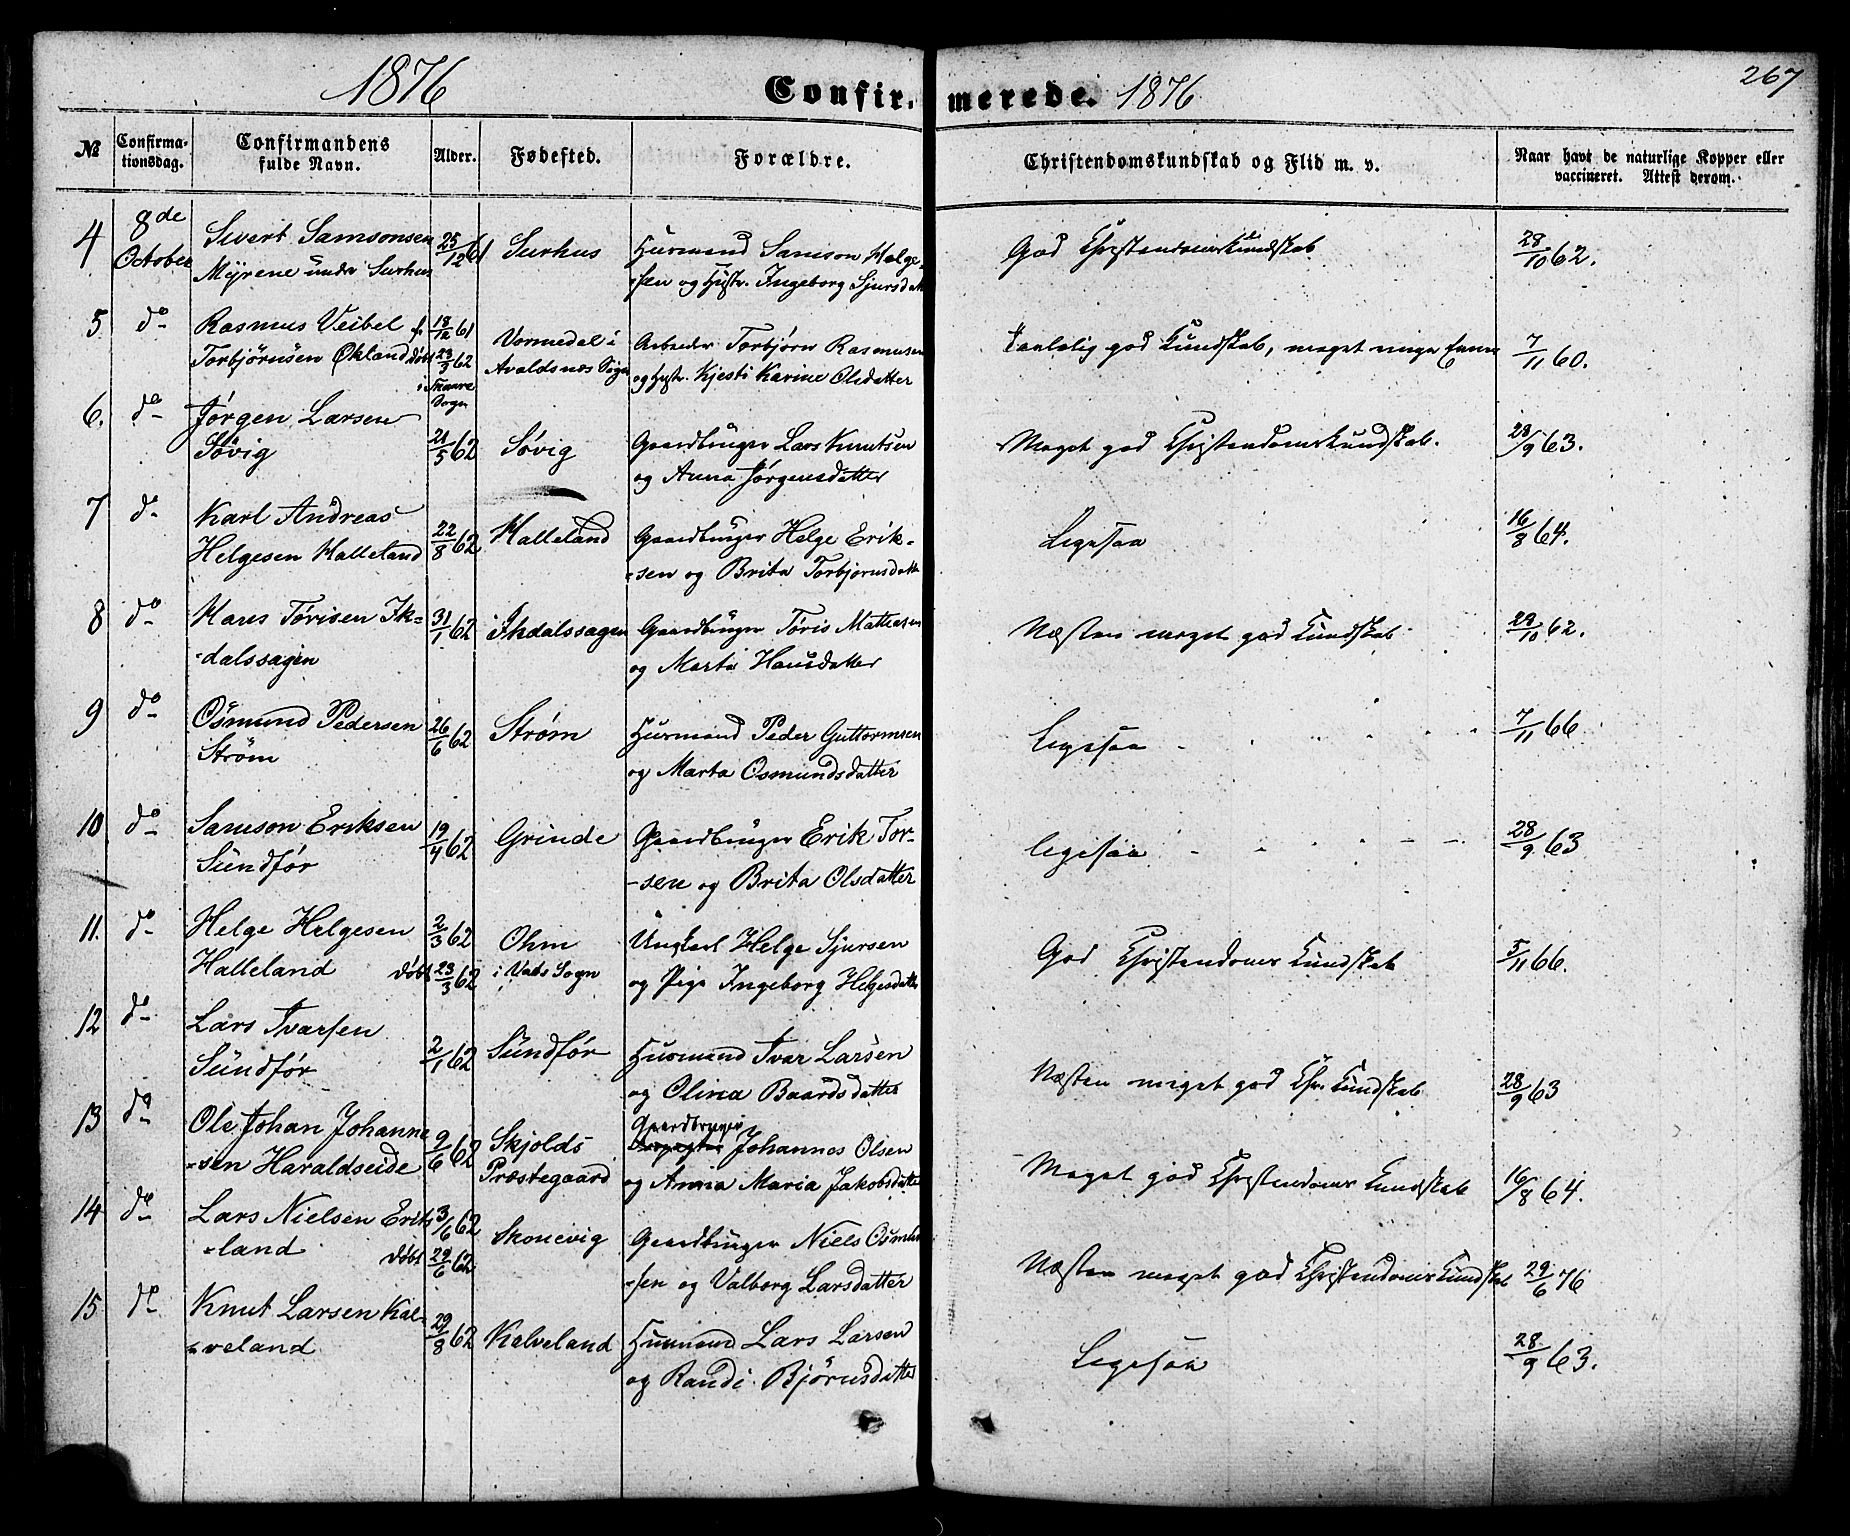 1876 Confir- merede. 1876 267
№ Confirma-tionsdag. Confirmandens fulde Navn. Alder. Fødested. Forældre. Christendomskundskab og Flid m. v. Naar havt de naturlige Kopper eller vaccineret. Attest derom.
4 8de October Sivert Samsonsen 25/12 61 Surhus Husmand Samson Helge- God Christendomskundskab 28/10 62.
Myrene under Surhus -sen og Hustr. Ingeborg Sjursdatt
5. do Rasmus Veibel f. 18/12 61 Vormedal i Arbeider Torbjørn Rasmusen Taalelig god Kundskab, meget ringe Evner 7/11 60.
Torbjørnsen Økland døbt 23/3 62 Avaldsnæs Sogn og Hustr. Kjesti Karine Olsdatter
i Skaare Sogn
6. do Jørgen Larsen 21/5 62 Søvig Gaardbruger Lars Knutsen Meget god Christendomskundskab. 23/9 63.
Søvig og Anna Jørgensdatter
7 do Karl Andreas 22/8 62 Halleland Gaardbruger Helge Erik- Ligesaa 16/8 64.
Helgesen Halleland -sen og Brita Torbjørnsdatt
8 do Hans Tørisen Ik- 31/1 62 Ikdalssagen Gaardbruger Tøris Matteasen Næsten meget god Kundskab 23/10 62.
-dalssagen og Marta Hansdatter
9 do Osmund Pedersen 26/6 62 Strøm Husmand Peder Guttormsen Ligesaa 7/11 66
Strøm og Marta Osmundsdatter
10 do Samson Eriksen 19/4 62 Grinde Gaardbruger Erik Tor- Ligesaa 28/9 63
Sundfør -sen og Brita Olsdatter
11. do Helge Helgesen 2/3 62 Ohm Ungkarl Helge Sjursen God Christendoms Kundskab 5/11 66.
Halleland døbt 23/3 62 i Vats Sogn og Pige Ingeborg Helgesdatter
12 do Lars Ivarsen 2/1 62 Sundfør Husmand Ivar Larsen Næsten meget god Chr. Kundskab 28/9 63
Sundfør og Olina Baardsdatter
13 do Ole Johan Johanne 9/6 62 Skjolds Gaardbruger Johannes Olsen Meget god Christendoms Kundskab 16/8 64.
-sen Haraldseide Præstegaard og Anna Maria Jakobsdatte
14 do Lars Nielsen Eriks 3/6 62 Skonevig Gaardbruger Niels Osmund Næsten meget god Christendomskundskab 29/6 76
-land døbt 29/6 62 -sen og Valborg Larsdatter
15 do Knut Larsen Kal- 29/8 62 Kalveland Husmand Lars Larsen Ligesaa 28/9 63.
-veland og Randi Bjørnsdatter